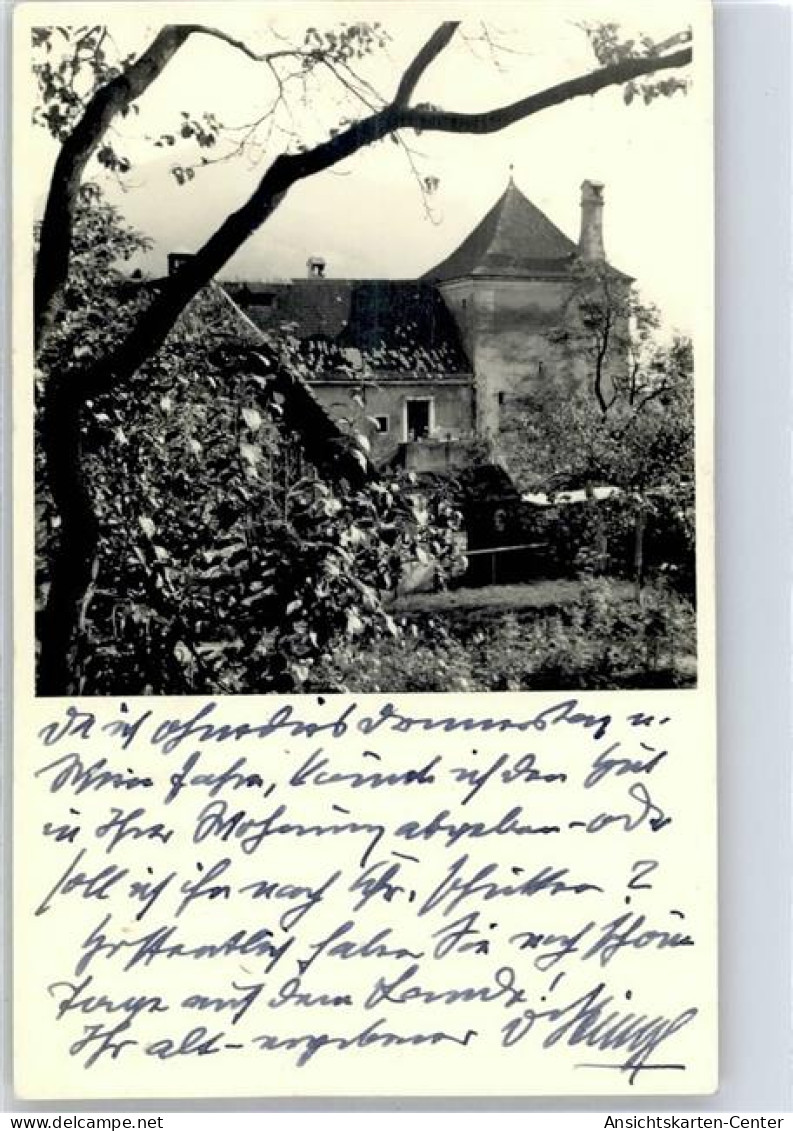 Da ich ohnedies Donnerstag n.
Wien fahre, könnte ich den Hut
in Ihrer Wohnung abgeben – oder
soll ich ihn nach Chr. schicken?
Hoffentlich haben Sie noch schöne
Tage auf dem Lande!
Ihr alt-ergebener
Ansichtskarten-Center